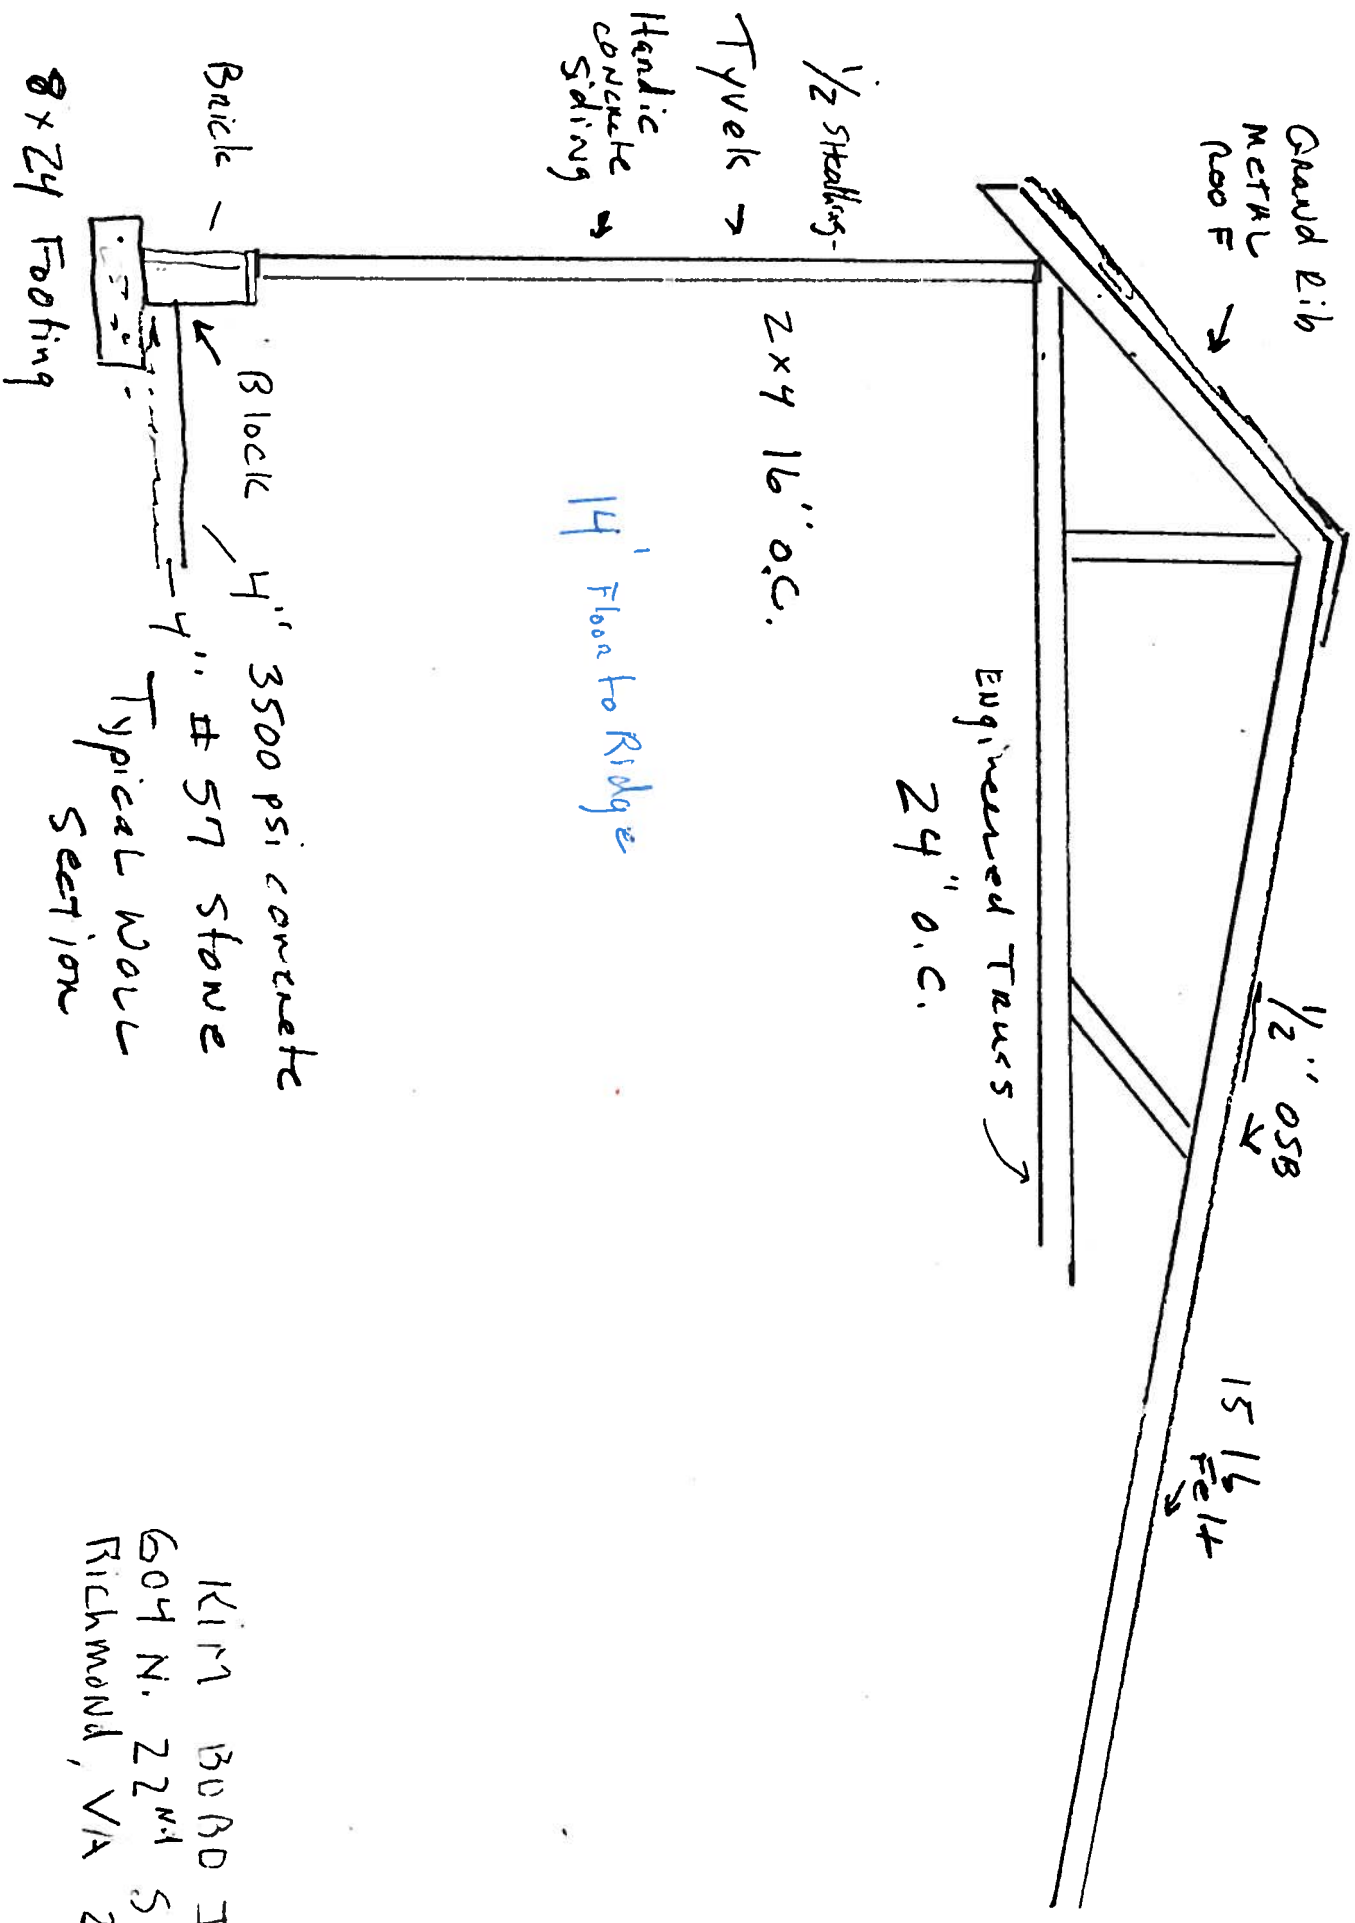 Grand Rib
METAL
ROOF
1/2" OSB
15 lb
Felt
1/2 Sheathing
Tyvek
Hardie
concrete
Siding
2x4 16" o.c.
Engineered Truss
24" o.c.
14' Floor to Ridge
Brick
Block
4" 3500 psi concrete
4" # 57 stone
8 x 24 Footing
Typical Wall
Section
Kim
604 N. 22nd S
Richmond, VA 2